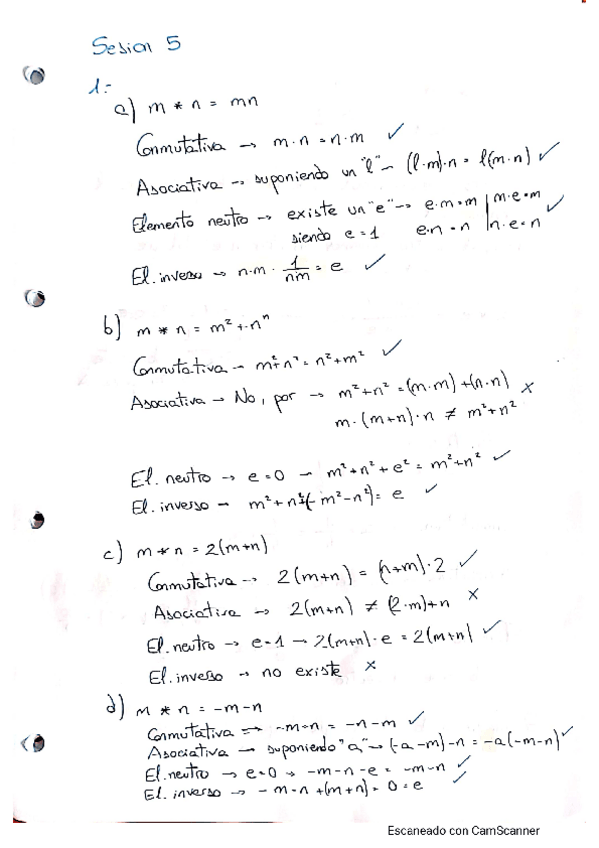 Sesion 5
1:-
a) m * n = mn
Conmutativa → m·n = n·m ✓
Asociativa → suponiendo un "l" → (l·m)·n = l(m·n) ✓
Elemento neutro → existe un "e" → e·m=m | m·e=m
siendo e=1 e·n=n | n·e=n ✓
El. inverso → n·m · 1/nm = e ✓
b) m * n = m² + n²
Conmutativa → m²+n² = n²+m² ✓
Asociativa → No, por → m²+n² = (m·m)+(n·n) x
m·(m+n)·n ≠ m²+n²
El. neutro → e=0 → m²+n²+e² = m²+n² ✓
El. inverso → m²+n²+(-m²-n²) = e ✓
c) m * n = 2(m+n)
Conmutativa → 2(m+n) = (n+m)·2 ✓
Asociativa → 2(m+n) ≠ (2·m)+n x
El. neutro → e=1 → 2(m+n)·e = 2(m+n) ✓
El. inverso → no existe x
d) m * n = -m-n
Conmutativa → -m-n = -n-m ✓
Asociativa → suponiendo "a" → (-a-m)-n = -a(-m-n) ✓
El. neutro → e=0 → -m-n-e = -m-n ✓
El. inverso → -m-n+(m+n) = 0 = e ✓
Escaneado con CamScanner